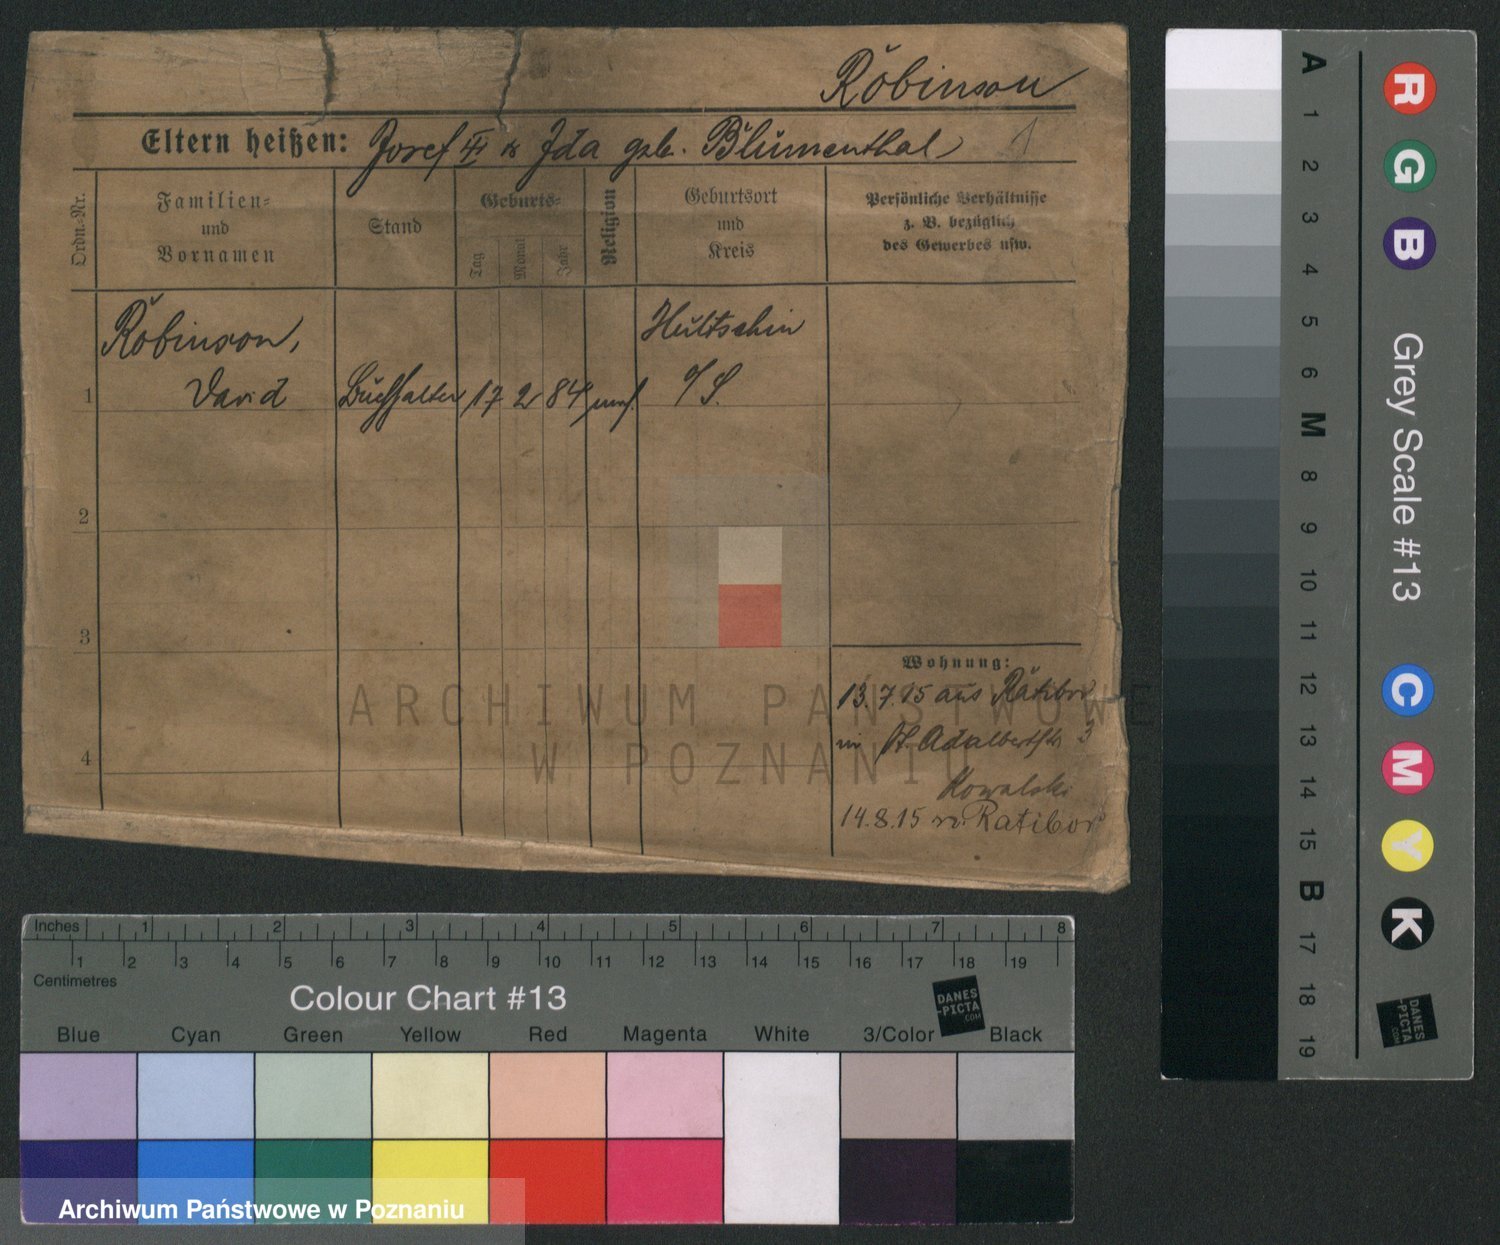 Robinson
Eltern heißen: Josef # & Ida geb. Blumenthal 1
Ordn.-Nr.
Familien-
und
Vornamen
Stand
Geburts-
Tag
Monat
Jahr
Religion
Geburtsort
und
Kreis
Persönliche Verhältnisse
z. B. bezüglich
des Gewerbes usw.
Robinson,
1 David Buchhalter 17 2 84 mos. Hultschin
O/S.
2
3
4
Wohnung:
13.7.15 aus Ratibor
in St. Adalbertstr 3
Kowalski
14.8.15 n. Ratibor
ARCHIWUM PAŃSTWOWE
W POZNANIU
A 1 2 3 4 5 6 M 8 9 10 11 12 13 14 15 B 17 18 19
Grey Scale #13
R G B
C M Y K
DANES
-PICTA
.COM
Inches 1 2 3 4 5 6 7 8
1 2 3 4 5 6 7 8 9 10 11 12 13 14 15 16 17 18 19
Centimetres
Colour Chart #13
DANES
-PICTA
.COM
Blue Cyan Green Yellow Red Magenta White 3/Color Black
Archiwum Państwowe w Poznaniu